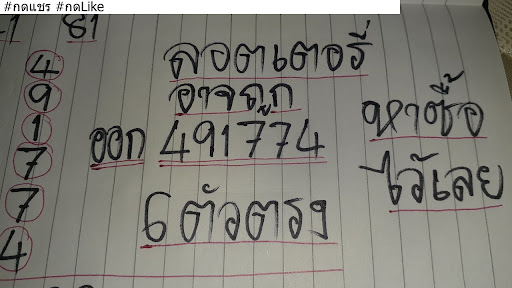 #กดแชร #กดLike
81
ลอตเตอรี่
อาจถูก
ออก 491774
6 ตัวตรง
หาซื้อ
ไว้เลย
4
9
1
7
7
4